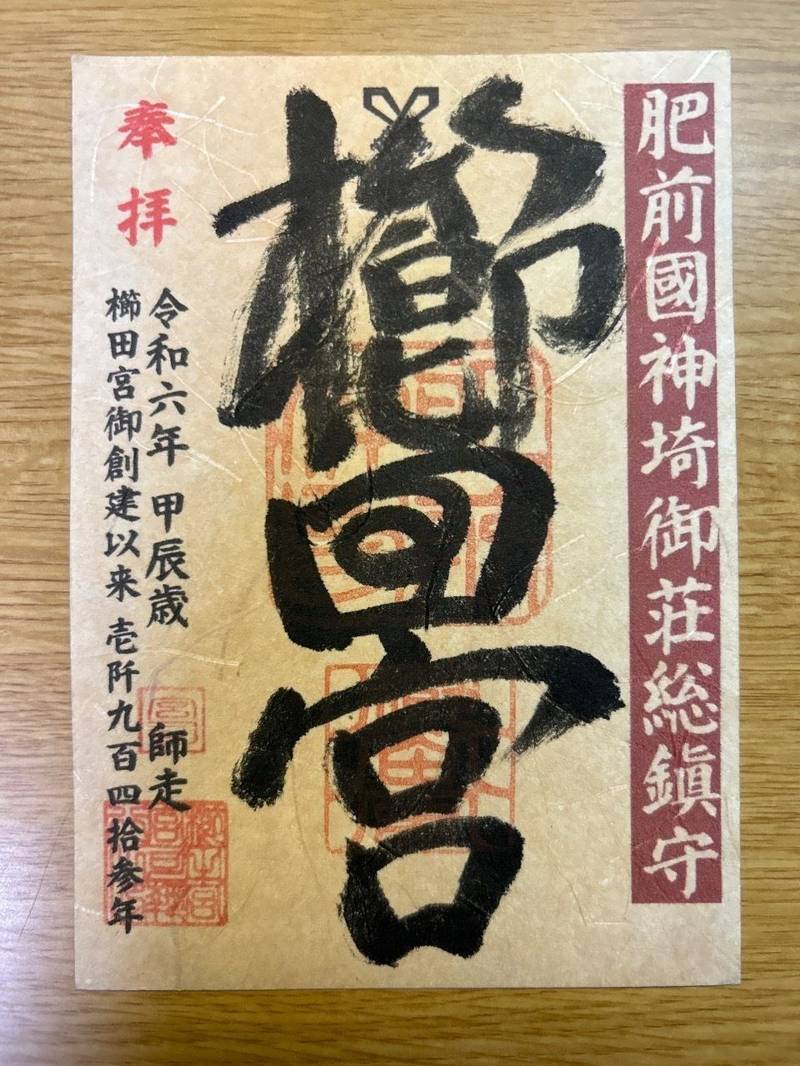 肥前國神埼御荘総鎮守
櫛田宮
奉拝
令和六年 甲辰歳 師走
櫛田宮御創建以来 壱阡九百四拾参年